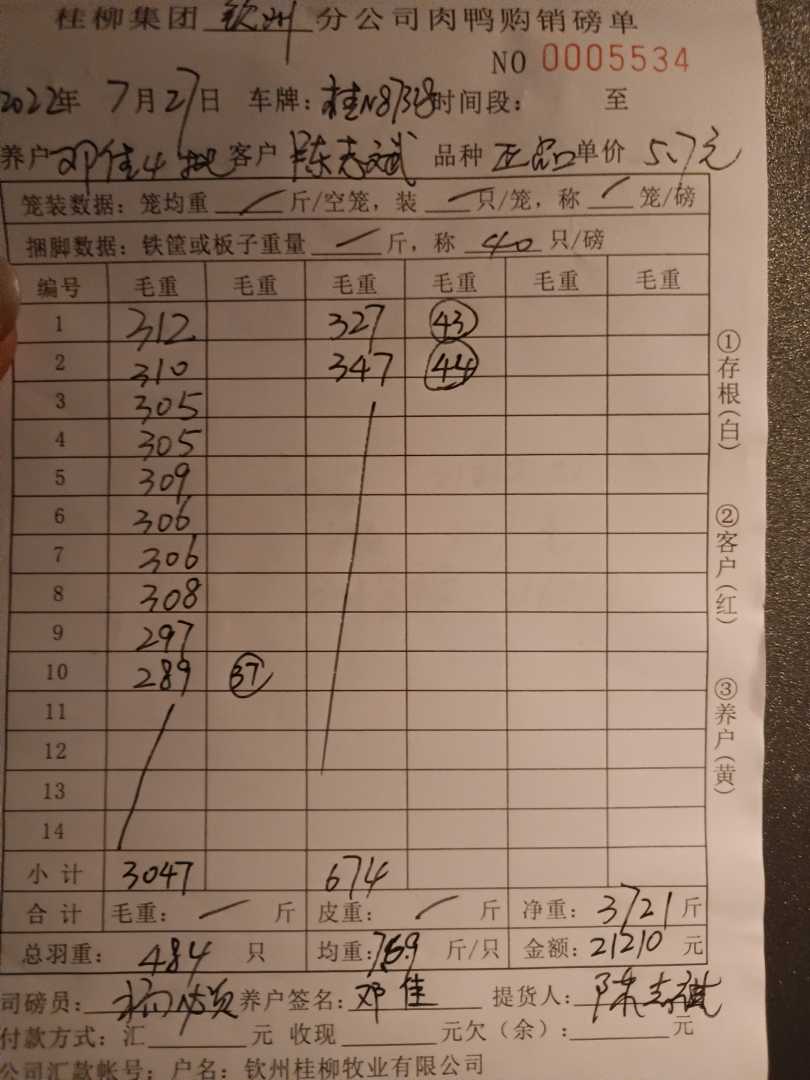 桂柳集团 钦州 分公司肉鸭购销磅单
NO 0005534
2022年 7月27日 车牌: 时间段: 至
养户 邓佳4批 客户 陈志斌 品种 正品 单价 5.7元
笼装数据: 笼均重 / 斤/空笼, 装 / 只/笼, 称 / 笼/磅
捆脚数据: 铁筐或板子重量 / 斤, 称 40 只/磅
编号 毛重 毛重 毛重 毛重 毛重 毛重
1 312 327 43
2 310 347 44
3 305
4 305
5 309
6 306
7 306
8 308
9 297
10 289 37
11
12
13
14
小计 3047 674
合计 毛重: / 斤 皮重: / 斤 净重: 3721 斤
总羽重: 484 只 均重: 斤/只 金额: 21210 元
司磅员: 养户签名: 邓佳 提货人: 陈志
付款方式: 汇 元 收现 元欠(余): 元
公司汇款帐号: 户名: 钦州桂柳牧业有限公司
①存根(白) ②客户(红) ③养户(黄)